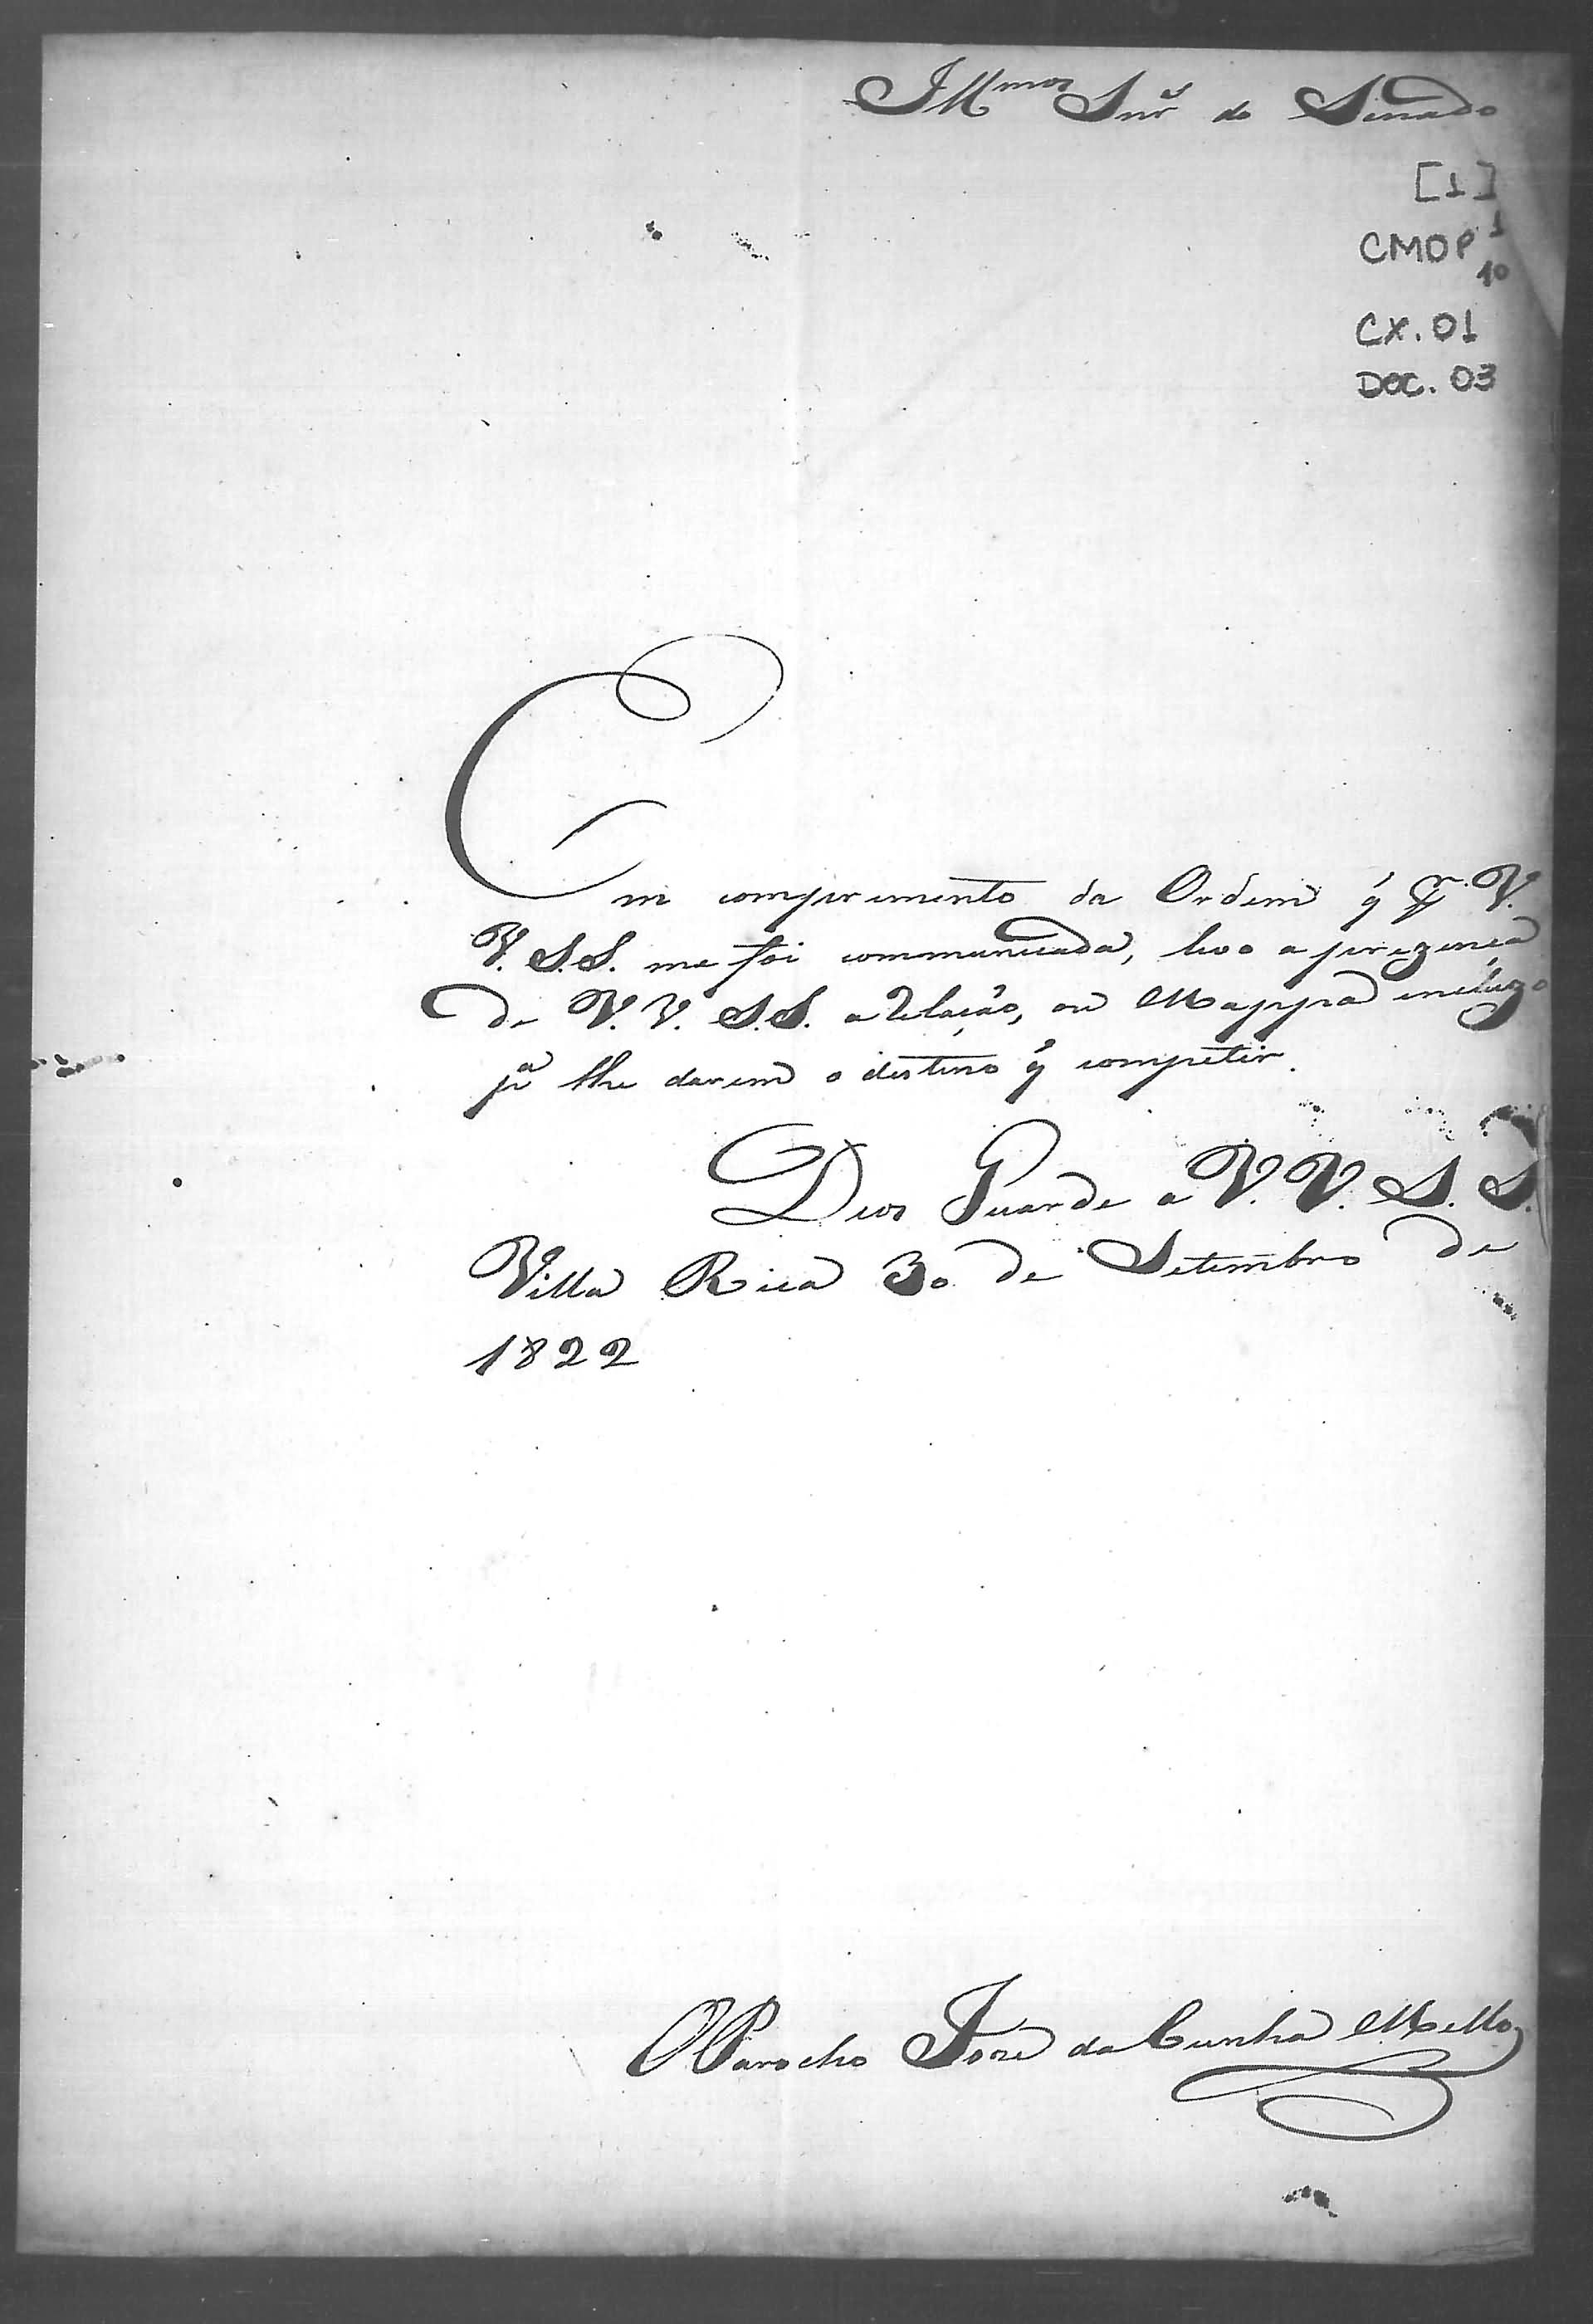 Illmos Snrs do Senado
[1]
CMOP 1
10
CX. 01
DOC. 03
Em comprimento da Ordem q̃ pr. V.
V. S.S. me foi communicada, levo a prezença
de V. V. S.S. a Relação, ou Mappa incluzo
pa lhe darem o destino q̃ competir.
Deos Guarde a V. V. S. S.
Villa Rica 30 de Setembro de
1822
O Parocho Joze da Cunha Mello